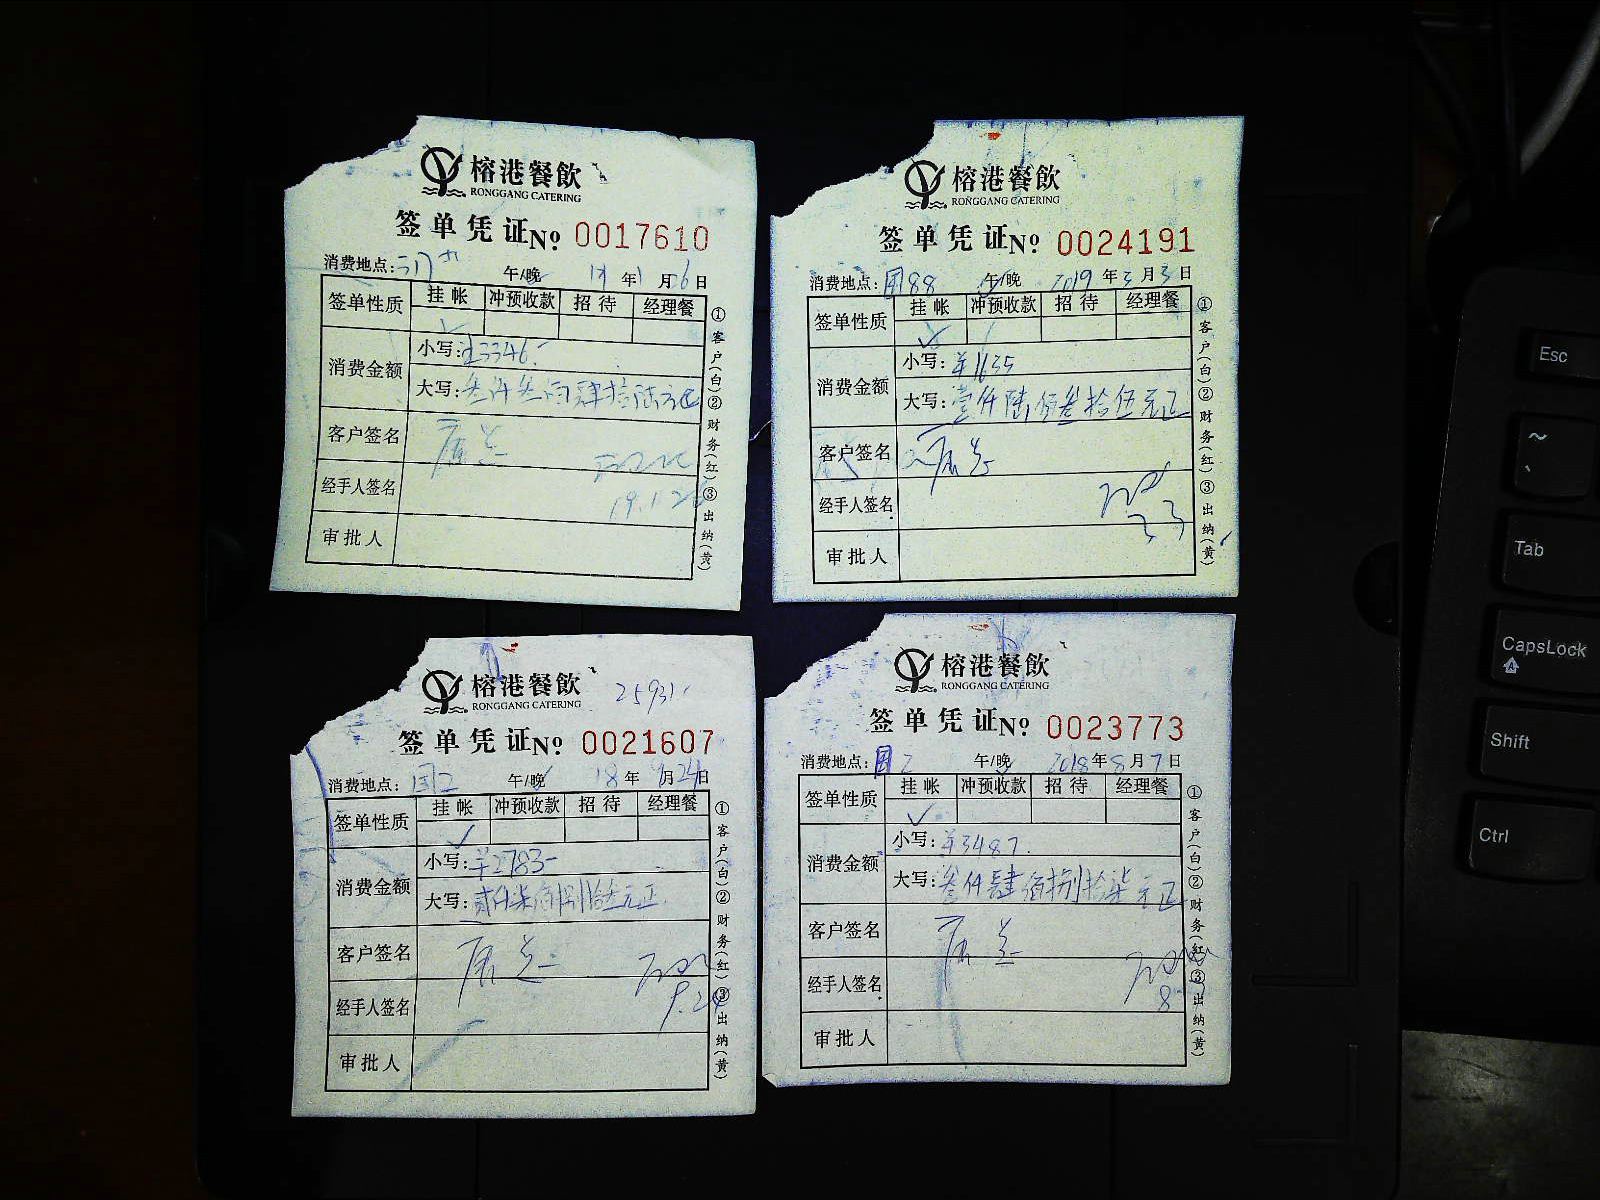 榕港餐飲
RONGGANG CATERING
签单凭证 № 0017610
消费地点: 午/晚 19年1月26日
签单性质 挂帐 冲预收款 招待 经理餐
消费金额 小写:¥3346.-
大写:叁仟叁佰肆拾陆元正
客户签名
19.1.26
经手人签名
审批人
①客户(白)②财务(红)③出纳(黄)
榕港餐飲
RONGGANG CATERING
签单凭证 № 0024191
消费地点:团88 午/晚 2019年3月3日
签单性质 挂帐 冲预收款 招待 经理餐
消费金额 小写:¥1635
大写:壹仟陆佰叁拾伍元正
客户签名
经手人签名
审批人
①客户(白)②财务(红)③出纳(黄)
榕港餐飲
RONGGANG CATERING
25931
签单凭证 № 0021607
消费地点: 午/晚 18年9月24日
签单性质 挂帐 冲预收款 招待 经理餐
消费金额 小写:¥2783-
大写:贰仟柒佰捌拾叁元正
客户签名
经手人签名 9.24
审批人
①客户(白)②财务(红)③出纳(黄)
榕港餐飲
RONGGANG CATERING
签单凭证 № 0023773
消费地点:团2 午/晚 2018年8月7日
签单性质 挂帐 冲预收款 招待 经理餐
消费金额 小写:¥3487.
大写:叁仟肆佰捌拾柒元正
客户签名
经手人签名
审批人
①客户(白)②财务(红)③出纳(黄)
Esc
~
`
Tab
CapsLock
Shift
Ctrl